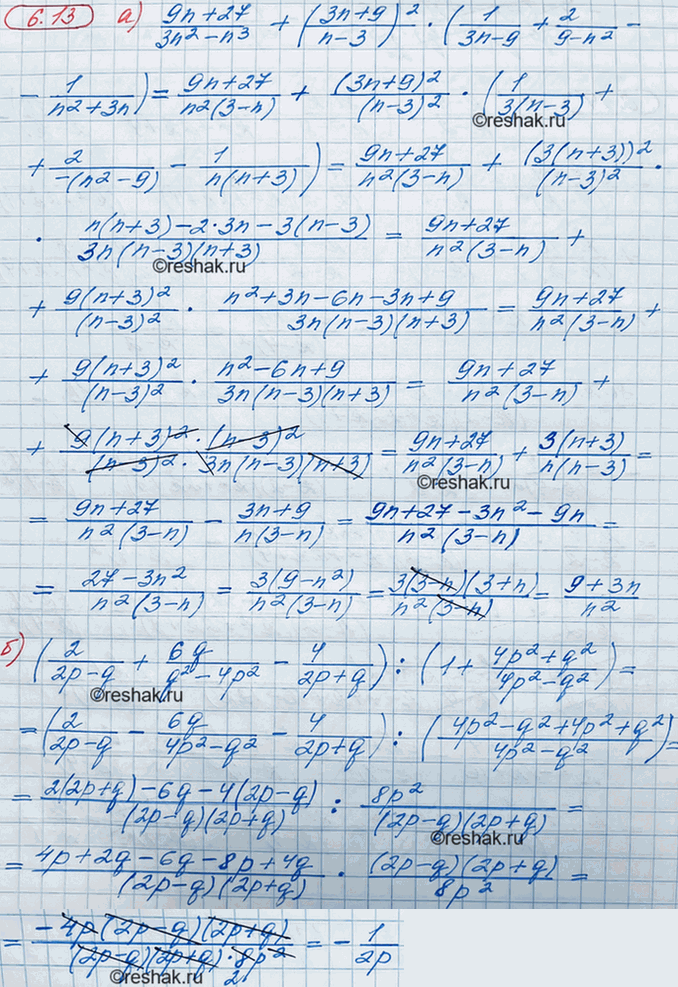 6.13 а) (9n+27)/(3n²-n³) + ((3n+9)/(n-3))² · (1/(3n-9) + 2/(9-n²) -
- 1/(n²+3n)) = (9n+27)/(n²(3-n)) + (3n+9)²/(n-3)² · (1/(3(n-3)) +
©reshak.ru
+ 2/(-(n²-9)) - 1/(n(n+3))) = (9n+27)/(n²(3-n)) + (3(n+3))²/(n-3)² ·
· (n(n+3)-2·3n-3(n-3))/(3n(n-3)(n+3)) = (9n+27)/(n²(3-n)) +
©reshak.ru
+ 9(n+3)²/(n-3)² · (n²+3n-6n-3n+9)/(3n(n-3)(n+3)) = (9n+27)/(n²(3-n)) +
+ 9(n+3)²/(n-3)² · (n²-6n+9)/(3n(n-3)(n+3)) = (9n+27)/(n²(3-n)) +
+ (9(n+3)²·(n-3)²)/((n-3)²·3n(n-3)(n+3)) = (9n+27)/(n²(3-n)) + 3(n+3)/(n(n-3)) =
©reshak.ru
= (9n+27)/(n²(3-n)) - (3n+9)/(n(3-n)) = (9n+27-3n²-9n)/(n²(3-n)) =
= (27-3n²)/(n²(3-n)) = 3(9-n²)/(n²(3-n)) = 3(3-n)(3+n)/(n²(3-n)) = (9+3n)/n²
б) (2/(2p-q) + 6q/(q²-4p²) - 4/(2p+q)) : (1 + (4p²+q²)/(4p²-q²)) =
©reshak.ru
= (2/(2p-q) - 6q/(4p²-q²) - 4/(2p+q)) : ((4p²-q²+4p²+q²)/(4p²-q²)) =
= (2(2p+q)-6q-4(2p-q))/((2p-q)(2p+q)) : 8p²/((2p-q)(2p+q)) =
©reshak.ru
= (4p+2q-6q-8p+4q)/((2p-q)(2p+q)) · (2p-q)(2p+q)/8p² =
= (-4p(2p-q)(2p+q))/((2p-q)(2p+q)·8p²) = -1/2p
©reshak.ru 2